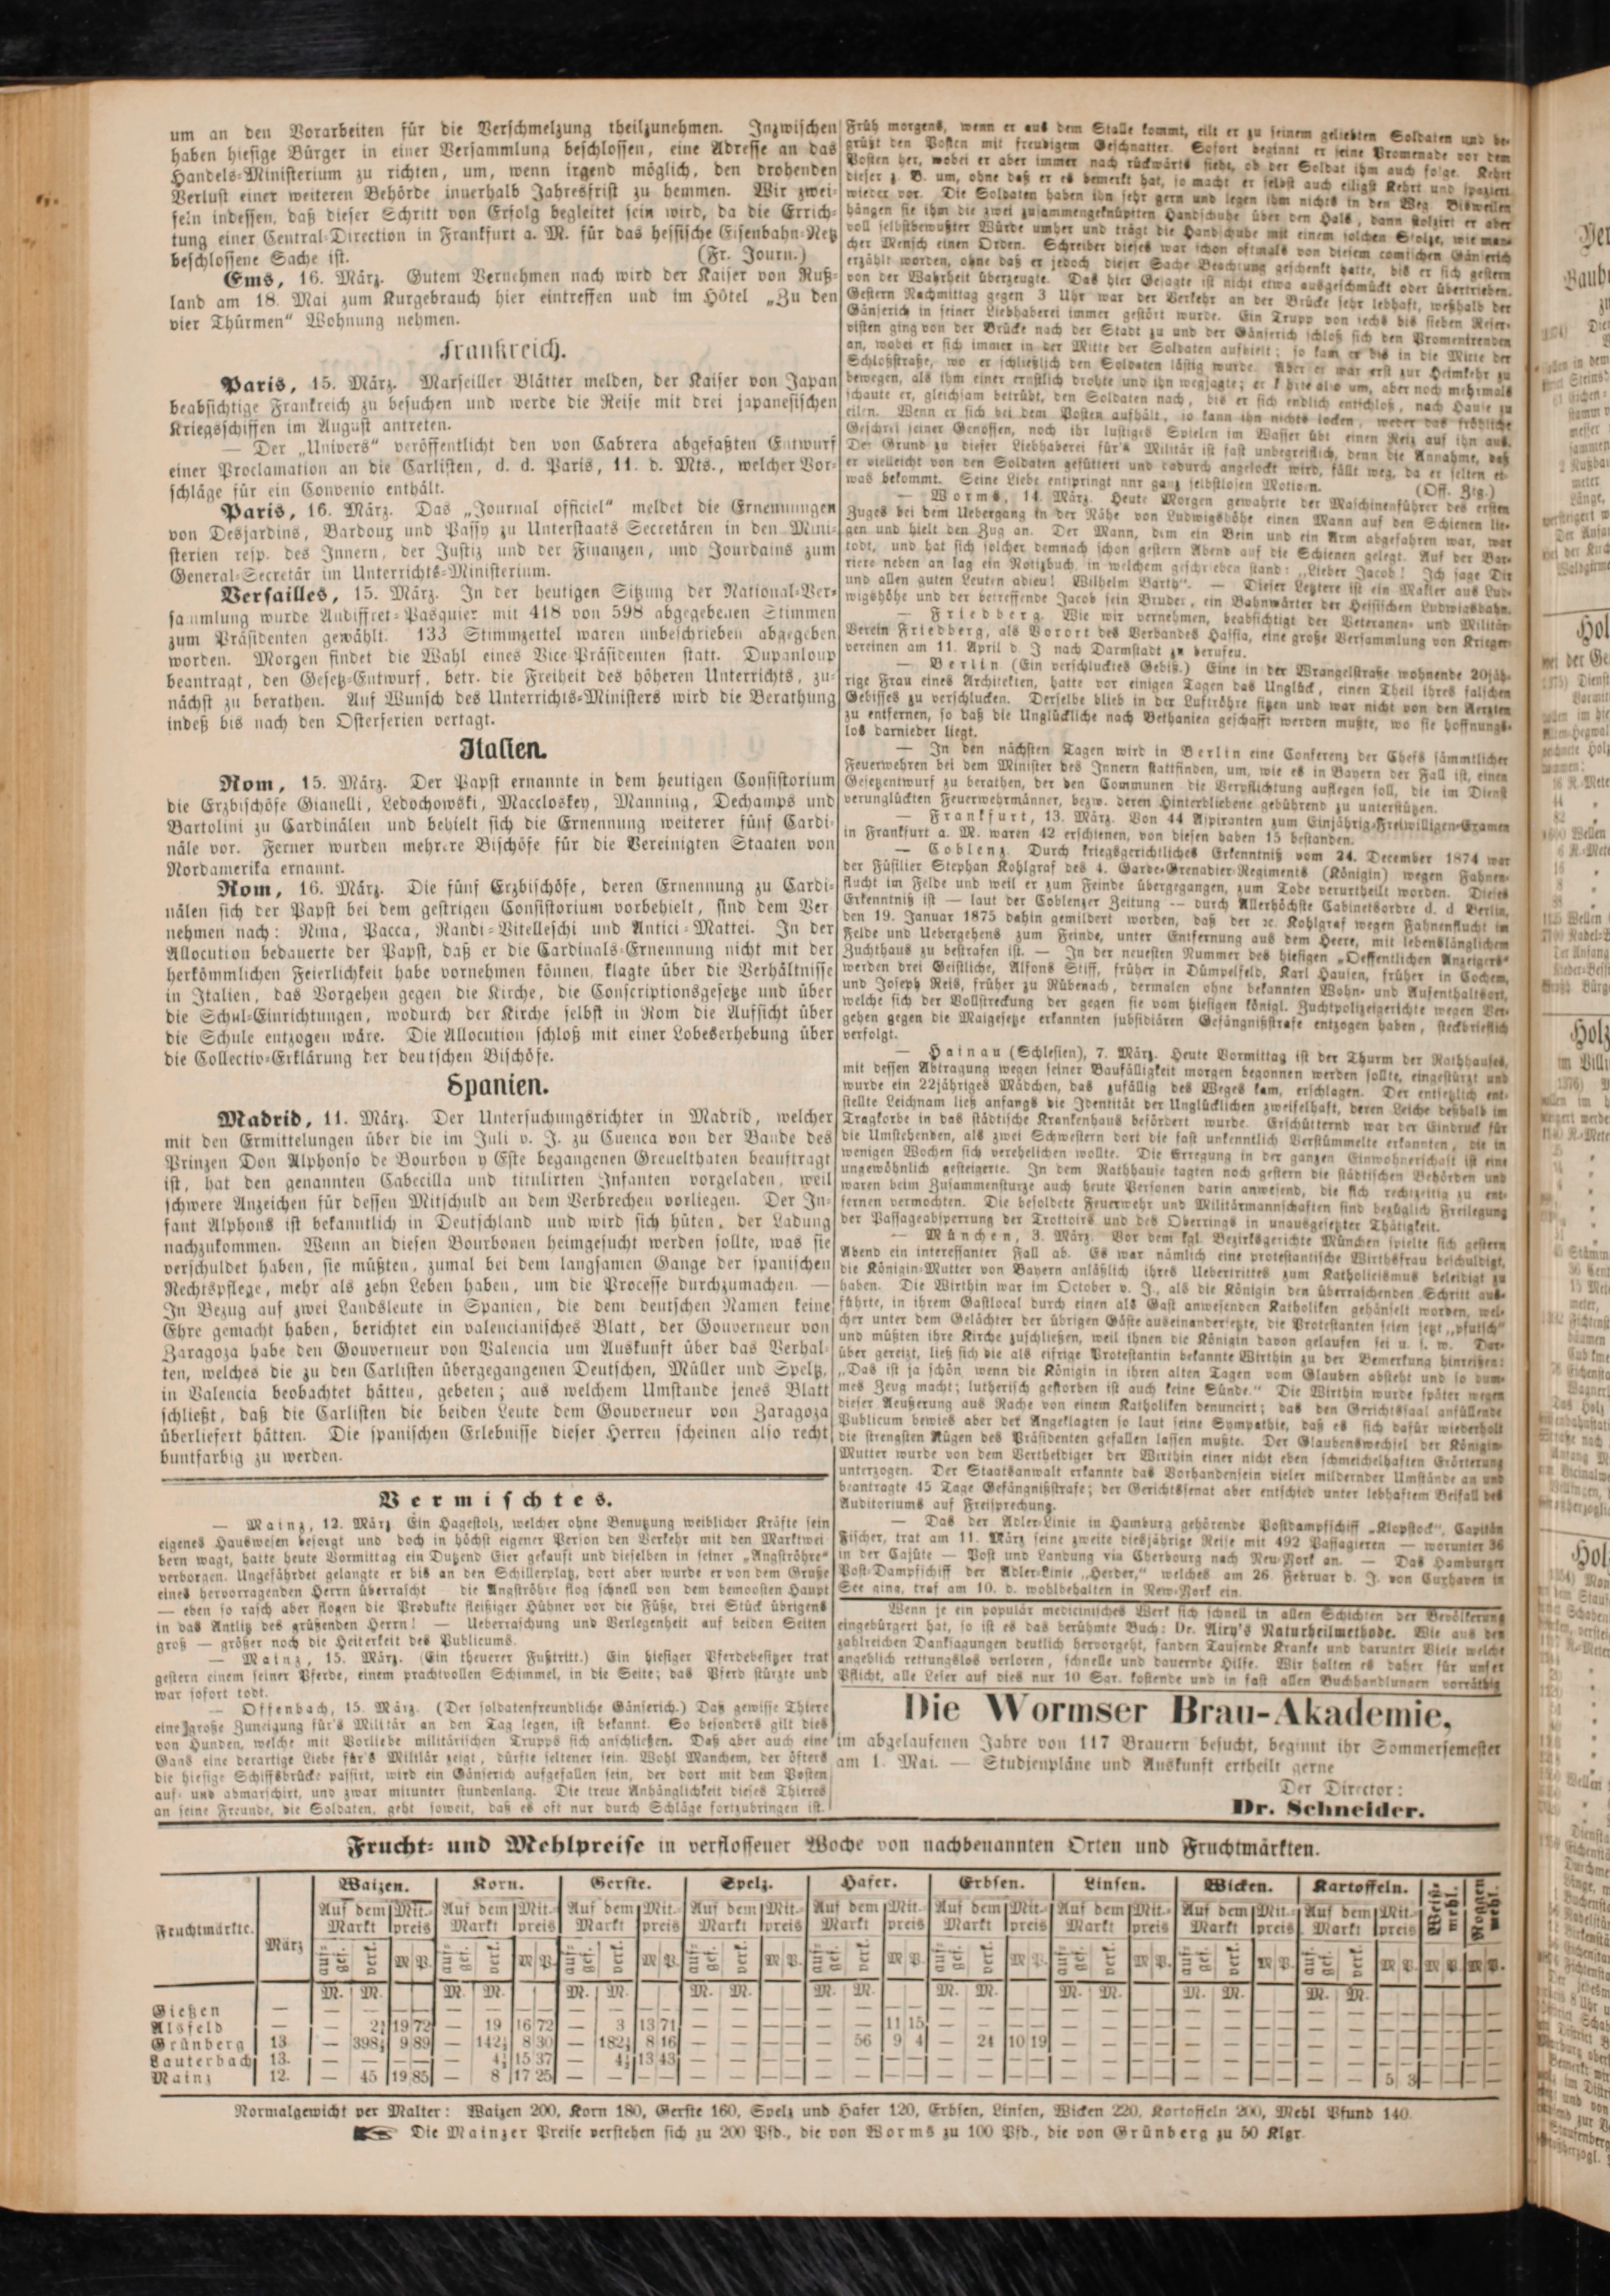 um an den Vorarbeiten für die Verschmelzung theilzunehmen. Inzwischen
haben hiesige Bürger in einer Versammlung beschlossen, eine Adresse an das
Handels-Ministerium zu richten, um, wenn irgend möglich, den drohenden
Verlust einer weiteren Behörde innerhalb Jahresfrist zu hemmen. Wir zwei-
feln indessen, daß dieser Schritt von Erfolg begleitet sein wird, da die Errich-
tung einer Central-Direction in Frankfurt a. M. für das hessische Eisenbahn-Netz
beschlossene Sache ist. (Fr. Journ.)
Ems, 16. März. Gutem Vernehmen nach wird der Kaiser von Ruß-
land am 18. Mai zum Kurgebrauch hier eintreffen und im Hôtel „Zu den
vier Thürmen" Wohnung nehmen.
Frankreich.
Paris, 15. März. Marseiller Blätter melden, der Kaiser von Japan
beabsichtige Frankreich zu besuchen und werde die Reise mit drei japanesischen
Kriegsschiffen im August antreten.
— Der „Univers" veröffentlicht den von Cabrera abgefaßten Entwurf
einer Proclamation an die Carlisten, d. d. Paris, 11. d. Mts., welcher Vor-
schläge für ein Convenio enthält.
Paris, 16. März. Das „Journal officiel" meldet die Ernennungen
von Desjardins, Bardoux und Passy zu Unterstaats Secretären in den Mini-
sterien resp. des Innern, der Justiz und der Finanzen, und Jourdains zum
General-Secretär im Unterrichts-Ministerium.
Versailles, 15. März. In der heutigen Sitzung der National-Ver-
sammlung wurde Audiffret-Pasquier mit 418 von 598 abgegebenen Stimmen
zum Präsidenten gewählt. 133 Stimmzettel waren unbeschrieben abgegeben
worden. Morgen findet die Wahl eines Vice-Präsidenten statt. Dupanloup
beantragt, den Gesetz-Entwurf, betr. die Freiheit des höheren Unterrichts, zu-
nächst zu berathen. Auf Wunsch des Unterrichts-Ministers wird die Berathung
indeß bis nach den Osterferien vertagt.
Italien.
Rom, 15. März. Der Papst ernannte in dem heutigen Consistorium
die Erzbischöfe Gianelli, Ledochowski, Maccloskey, Manning, Dechamps und
Bartolini zu Cardinälen und behielt sich die Ernennung weiterer fünf Cardi-
näle vor. Ferner wurden mehrere Bischöfe für die Vereinigten Staaten von
Nordamerika ernannt.
Rom, 16. März. Die fünf Erzbischöfe, deren Ernennung zu Cardi-
nälen sich der Papst bei dem gestrigen Consistorium vorbehielt, sind dem Ver
nehmen nach: Nina, Pacca, Randi-Vitelleschi und Antici-Mattei. In der
Allocution bedauerte der Papst, daß er die Cardinals-Ernennung nicht mit der
herkömmlichen Feierlichkeit habe vornehmen können, klagte über die Verhältnisse
in Italien, das Vorgehen gegen die Kirche, die Conscriptionsgesetze und über
die Schul-Einrichtungen, wodurch der Kirche selbst in Rom die Aufsicht über
die Schule entzogen wäre. Die Allocution schloß mit einer Lobeserhebung über
die Collectiv-Erklärung der deutschen Bischöfe.
Spanien.
Madrid, 11. März. Der Untersuchungsrichter in Madrid, welcher
mit den Ermittelungen über die im Juli v. J. zu Cuenca von der Bande des
Prinzen Don Alphonso de Bourbon y Este begangenen Greuelthaten beauftragt
ist, hat den genannten Cabecilla und titulirten Infanten vorgeladen, weil
schwere Anzeichen für dessen Mitschuld an dem Verbrechen vorliegen. Der In-
fant Alphons ist bekanntlich in Deutschland und wird sich hüten, der Ladung
nachzukommen. Wenn an diesen Bourbonen heimgesucht werden sollte, was sie
verschuldet haben, sie müßten, zumal bei dem langsamen Gange der spanischen
Rechtspflege, mehr als zehn Leben haben, um die Processe durchzumachen. —
In Bezug auf zwei Landsleute in Spanien, die dem deutschen Namen keine
Ehre gemacht haben, berichtet ein valencianisches Blatt, der Gouverneur von
Zaragoza habe den Gouverneur von Valencia um Auskunft über das Verhal-
ten, welches die zu den Carlisten übergegangenen Deutschen, Müller und Speltz,
in Valencia beobachtet hätten, gebeten; aus welchem Umstande jenes Blatt
schließt, daß die Carlisten die beiden Leute dem Gouverneur von Zaragoza
überliefert hätten. Die spanischen Erlebnisse dieser Herren scheinen also recht
buntfarbig zu werden.
Vermischtes.
— Mainz, 12. März. Ein Hagestolz, welcher ohne Benutzung weiblicher Kräfte sein
eigenes Hauswesen besorgt und doch in höchst eigener Person den Verkehr mit den Marktwei
bern wagt, hatte heute Vormittag ein Dutzend Eier gekauft und dieselben in seiner „Angströhre"
verborgen. Ungefährdet gelangte er bis an den Schillerplatz, dort aber wurde er von dem Gruße
eines hervorragenden Herrn überrascht die Angströhre flog schnell von dem bemoosten Haupt
— eben so rasch aber flogen die Produkte fleißiger Hühner vor die Füße, drei Stück übrigens
in das Antlitz des grüßenden Herrn! — Ueberraschung und Verlegenheit auf beiden Seiten
groß — größer noch die Heiterkeit des Publicums.
— Mainz, 15. März. (Ein theuerer Fußtritt.) Ein hiesiger Pferdebesitzer trat
gestern einem seiner Pferde, einem prachtvollen Schimmel, in die Seite; das Pferd stürzte und
war sofort todt.
— Offenbach, 15. März. (Der soldatenfreundliche Gänserich.) Daß gewisse Thiere
eine große Zuneigung für's Militär an den Tag legen, ist bekannt. So besonders gilt dies
von Hunden, welche mit Vorliebe militärischen Trupps sich anschließen. Daß aber auch eine
Gans eine derartige Liebe für's Militär zeigt, dürfte seltener sein. Wohl Manchem, der öfters
die hiesige Schiffsbrücke passirt, wird ein Gänserich aufgefallen sein, der dort mit dem Posten
auf- und abmarschirt, und zwar mitunter stundenlang. Die treue Anhänglichkeit dieses Thieres
an seine Freunde, die Soldaten, geht soweit, daß es oft nur durch Schläge fortzubringen ist.
Früh morgens, wenn er aus dem Stalle kommt, eilt er zu seinem geliebten Soldaten und be-
grüßt den Posten mit freudigem Geschnatter. Sofort beginnt er seine Promenade vor dem
Posten her, wobei er aber immer nach rückwärts sieht, ob der Soldat ihm auch folge. Kehrt
dieser z. B. um, ohne daß er es bemerkt hat, so macht er selbst auch eiligst Kehrt und spaziert
wieder vor. Die Soldaten haben ihn sehr gern und legen ihm nichts in den Weg. Bisweilen
hängen sie ihm die zwei zusammengeknüpften Handschuhe über den Hals, dann stolzirt er aber
voll selbstbewußter Würde umher und trägt die Handschuhe mit einem solchen Stolze, wie man-
cher Mensch einen Orden. Schreiber dieses war schon oftmals von diesem comischen Gänserich
erzählt worden, ohne daß er jedoch dieser Sache Beachtung geschenkt hatte, bis er sich gestern
von der Wahrheit überzeugte. Das hier Gesagte ist nicht etwa ausgeschmückt oder übertrieben.
Gestern Nachmittag gegen 3 Uhr war der Verkehr an der Brücke sehr lebhaft, weßhalb der
Gänserich in seiner Liebhaberei immer gestört wurde. Ein Trupp von sechs bis sieben Reser-
visten ging von der Brücke nach der Stadt zu und der Gänserich schloß sich den Promenirenden
an, wobei er sich immer in der Mitte der Soldaten aufhielt; so kam er bis in die Mitte der
Schloßstraße, wo er schließlich den Soldaten lästig wurde. Aber er war erst zur Heimkehr zu
bewegen, als ihm einer ernstlich drohte und ihn wegjagte; er kehrte also um, aber noch mehrmals
schaute er, gleichsam betrübt, den Soldaten nach, bis er sich endlich entschloß, nach Hause zu
eilen. Wenn er sich bei dem Posten aufhält, so kann ihn nichts locken, weder das fröhliche
Geschrei seiner Genossen, noch ihr lustiges Spielen im Wasser übt einen Reiz auf ihn aus.
Der Grund zu dieser Liebhaberei für's Militär ist fast unbegreiflich, denn die Annahme, daß
er vielleicht von den Soldaten gefüttert und dadurch angelockt wird, fällt weg, da er selten et-
was bekommt. Seine Liebe entspringt nur ganz selbstlosen Motiven. (Off. Ztg.)
— Worms, 14. März. Heute Morgen gewahrte der Maschinenführer des ersten
Zuges bei dem Uebergang in der Nähe von Ludwigshöhe einen Mann auf den Schienen lie-
gen und hielt den Zug an. Der Mann, dem ein Bein und ein Arm abgefahren war, war
todt, und hat sich solcher demnach schon gestern Abend auf die Schienen gelegt. Auf der Bar-
riere neben an lag ein Notizbuch, in welchem geschrieben stand: „Lieber Jacob! Ich sage Dir
und allen guten Leuten adieu! Wilhelm Barth". — Dieser Letztere ist ein Makler aus Lud-
wigshöhe und der betreffende Jacob sein Bruder, ein Bahnwärter der Hessischen Ludwigsbahn.
— Friedberg. Wie wir vernehmen, beabsichtigt der Veteranen- und Militär-
Verein Friedberg, als Vorort des Verbandes Hassia, eine große Versammlung von Krieger-
vereinen am 11. April d. J nach Darmstadt zu berufen.
— Berlin (Ein verschlucktes Gebiß.) Eine in der Wrangelstraße wohnende 20jäh-
rige Frau eines Architekten, hatte vor einigen Tagen das Unglück, einen Theil ihres falschen
Gebisses zu verschlucken. Derselbe blieb in der Luftröhre sitzen und war nicht von den Aerzten
zu entfernen, so daß die Unglückliche nach Bethanien geschafft werden mußte, wo sie hoffnungs-
los darnieder liegt.
— In den nächsten Tagen wird in Berlin eine Conferenz der Chefs sämmtlicher
Feuerwehren bei dem Minister des Innern stattfinden, um, wie es in Bayern der Fall ist, einen
Gesetzentwurf zu berathen, der den Communen die Verpflichtung auflegen soll, die im Dienst
verunglückten Feuerwehrmänner, bezw. deren Hinterbliebene gebührend zu unterstützen.
— Frankfurt, 13. März. Von 44 Aspiranten zum Einjährig-Freiwilligen-Examen
in Frankfurt a. M. waren 42 erschienen, von diesen haben 15 bestanden.
— Coblenz. Durch kriegsgerichtliches Erkenntniß vom 24. December 1874 war
der Füsilier Stephan Kohlgraf des 4. Garde-Grenadier-Regiments (Königin) wegen Fahnen-
flucht im Felde und weil er zum Feinde übergegangen, zum Tode verurtheilt worden. Dieses
Erkenntniß ist — laut der Coblenzer Zeitung — durch Allerhöchste Cabinetsordre d. d Berlin,
den 19. Januar 1875 dahin gemildert worden, daß der ꝛc. Kohlgraf wegen Fahnenflucht im
Felde und Uebergehens zum Feinde, unter Entfernung aus dem Heere, mit lebenslänglichem
Zuchthaus zu bestrafen ist. — In der neuesten Nummer des hiesigen „Oeffentlichen Anzeigers"
werden drei Geistliche, Alfons Stiff, früher in Dümpelfeld, Karl Hausen, früher in Cochem,
und Joseph Reis, früher zu Rübenach, dermalen ohne bekannten Wohn- und Aufenthaltsort,
welche sich der Vollstreckung der gegen sie vom hiesigen königl. Zuchtpolizeigerichte wegen Ver-
gehen gegen die Maigesetze erkannten subsidiären Gefängnißstrafe entzogen haben, steckbrieflich
verfolgt.
— Hainau (Schlesien), 7. März. Heute Vormittag ist der Thurm der Rathhauses,
mit dessen Abtragung wegen seiner Baufälligkeit morgen begonnen werden sollte, eingestürzt und
wurde ein 22jähriges Mädchen, das zufällig des Weges kam, erschlagen. Der entsetzlich ent-
stellte Leichnam ließ anfangs die Identität der Unglücklichen zweifelhaft, deren Leiche deßhalb im
Tragkorbe in das städtische Krankenhaus befördert wurde. Erschütternd war der Eindruck für
die Umstehenden, als zwei Schwestern dort die fast unkenntlich Verstümmelte erkannten, die in
wenigen Wochen sich verehelichen wollte. Die Erregung in der ganzen Einwohnerschaft ist eine
ungewöhnlich gesteigerte. In dem Rathhause tagten noch gestern die städtischen Behörden und
waren beim Zusammensturze auch heute Personen darin anwesend, die sich rechtzeitig zu ent-
fernen vermochten. Die besoldete Feuerwehr und Militärmannschaften sind bezüglich Freilegung
der Passageabsperrung der Trottoirs und des Oberrings in unausgesetzter Thätigkeit.
— München, 3. März. Vor dem kgl. Bezirksgerichte München spielte sich gestern
Abend ein interessanter Fall ab. Es war nämlich eine protestantische Wirthsfrau beschuldigt,
die Königin-Mutter von Bayern anläßlich ihres Uebertrittes zum Katholicismus beleidigt zu
haben. Die Wirthin war im October v. J., als die Königin den überraschenden Schritt aus-
führte, in ihrem Gastlocal durch einen als Gast anwesenden Katholiken gehänselt worden, wel-
cher unter dem Gelächter der übrigen Gäste auseinandersetzte, die Protestanten seien jetzt „pfutsch"
und müßten ihre Kirche zuschließen, weil ihnen die Königin davon gelaufen sei u. s. w. Dar-
über gereizt, ließ sich die als eifrige Protestantin bekannte Wirthin zu der Bemerkung hinreißen:
„Das ist ja schön, wenn die Königin in ihren alten Tagen vom Glauben absteht und so dum-
mes Zeug macht; lutherisch gestorben ist auch keine Sünde." Die Wirthin wurde später wegen
dieser Aeußerung aus Rache von einem Katholiken denuncirt; das den Gerichtssaal anfüllende
Publicum bewies aber der Angeklagten so laut seine Sympathie, daß es sich dafür wiederholt
die strengsten Rügen des Präsidenten gefallen lassen mußte. Der Glaubenswechsel der Königin-
Mutter wurde von dem Vertheidiger der Wirthin einer nicht eben schmeichelhaften Erörterung
unterzogen. Der Staatsanwalt erkannte das Vorhandensein vieler mildernder Umstände an und
beantragte 45 Tage Gefängnißstrafe; der Gerichtssenat aber entschied unter lebhaftem Beifall des
Auditoriums auf Freisprechung.
— Das der Adler-Linie in Hamburg gehörende Postdampfschiff „Klopstock", Capitän
Fischer, trat am 11. März seine zweite diesjährige Reise mit 492 Passagieren — worunter 36
in der Cajüte — Post und Landung via Cherbourg nach New-York an. — Das Hamburger
Post-Dampfschiff der Adler-Linie „Herder," welches am 26. Februar d. J. von Cuxhaven in
See ging, traf am 10. d. wohlbehalten in New-York ein.
Wenn je ein populär medicinisches Werk sich schnell in allen Schichten der Bevölkerung
eingebürgert hat, so ist es das berühmte Buch: Dr. Airy's Naturheilmethode. Wie aus den
zahlreichen Danksagungen deutlich hervorgeht, fanden Tausende Kranke und darunter Viele welche
angeblich rettungslos verloren, schnelle und dauernde Hilfe. Wir halten es daher für unser
Pflicht, alle Leser auf dies nur 10 Sgr. kostende und in fast allen Buchhandlungen vorräthig
Die Wormser Brau-Akademie,
im abgelaufenen Jahre von 117 Brauern besucht, beginnt ihr Sommersemester
am 1. Mai. — Studienpläne und Auskunft ertheilt gerne
Der Director:
Dr. Schneider.
Frucht- und Mehlpreise in verflossener Woche von nachbenannten Orten und Fruchtmärkten.
Fruchtmärkte. März Waizen. Korn. Gerste. Spelz. Hafer. Erbsen. Linsen. Wicken. Kartoffeln. Weiß-mehl. Roggen mehl.
Auf dem Markt Mit-preis Auf dem Markt Mit-preis Auf dem Markt Mit-preis Auf dem Markt Mit-preis Auf dem Markt Mit-preis Auf dem Markt Mit-preis Auf dem Markt Mit-preis Auf dem Markt Mit-preis Auf dem Markt Mit-preis
Gießen — — — — — — — — — —
Alsfeld — — 2½ 19 72 — 19 16 72 — 3 13 71 — — — — — — 11 15 — — — —
Grünberg 13 — 398½ 9 89 — 142½ 8 30 — 182½ 8 16 — — — — — 56 9 4 — 24 10 19 — — — —
Lauterbach 13. — — — — — 4½ 15 37 — 4½ 13 43 — — — —
Mainz 12. — 45 19 85 — 8 17 25 — — — — — — 5 3 — — — —
Normalgewicht per Malter: Waizen 200, Korn 180, Gerste 160, Spelz und Hafer 120, Erbsen, Linsen, Wicken 220, Kartoffeln 200, Mehl Pfund 140.
Die Mainzer Preise verstehen sich zu 200 Pfd., die von Worms zu 100 Pfd., die von Grünberg zu 50 Klgr.